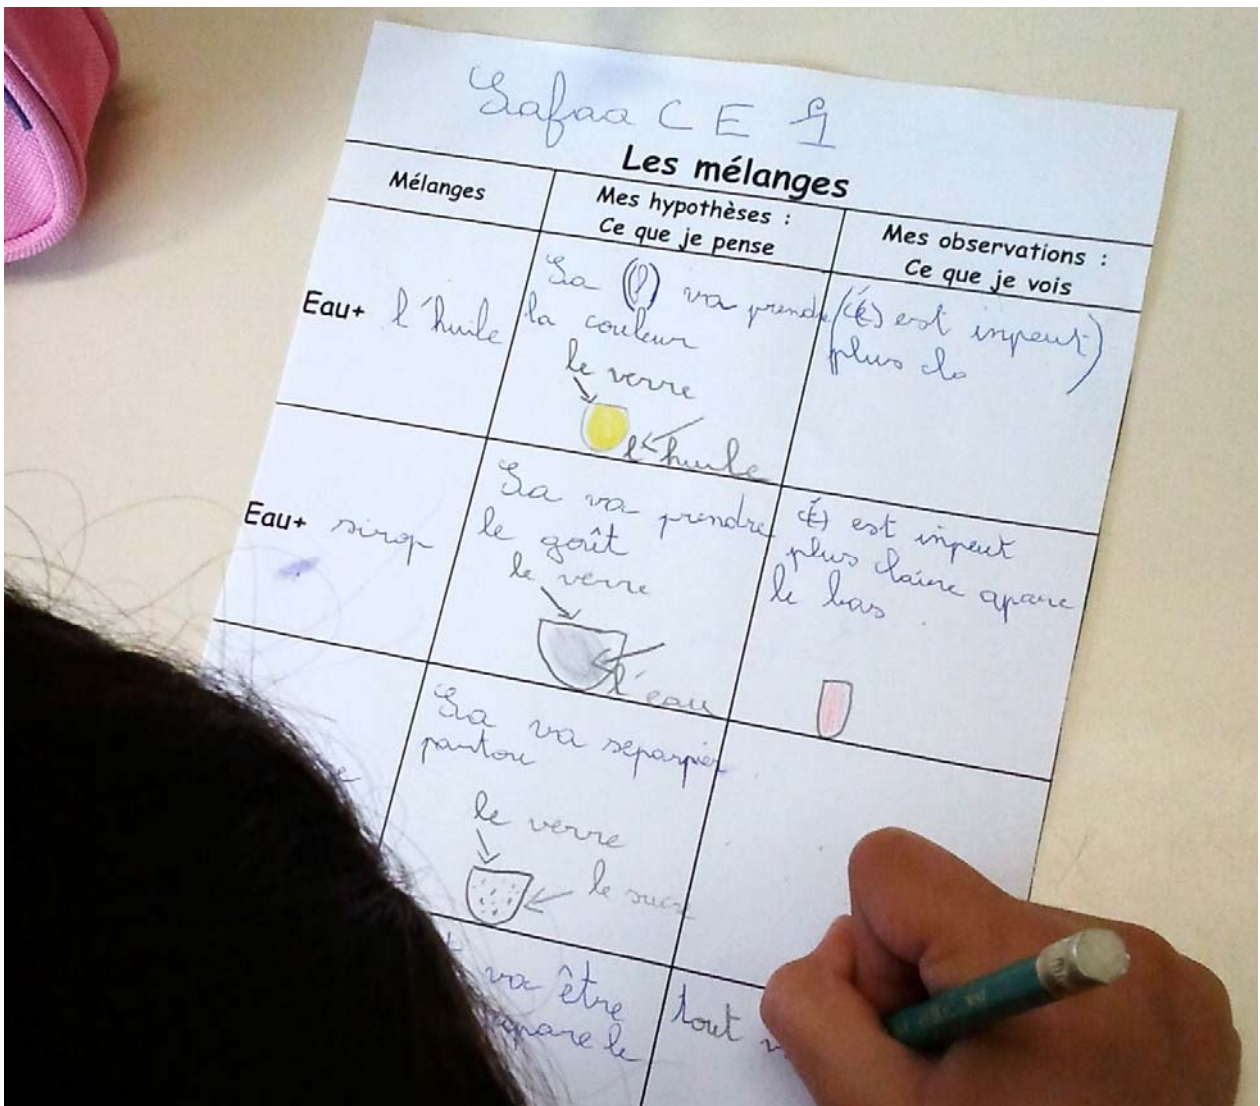 Safaa CE 1
Les mélanges
Mélanges
Mes hypothèses :
Ce que je pense
Mes observations :
Ce que je vois
Eau+ l'huile
Sa (l) va prendre
la couleur
le verre
l'huile
(c'é) est inpeut)
plus cla
Eau+ sirop
Sa va prendre
le goût
le verre
l'eau
c'é) est inpeut
plus claire apare
le bas
Sa va separpier
partou
le verre
le sucr
va être
apare le
tout